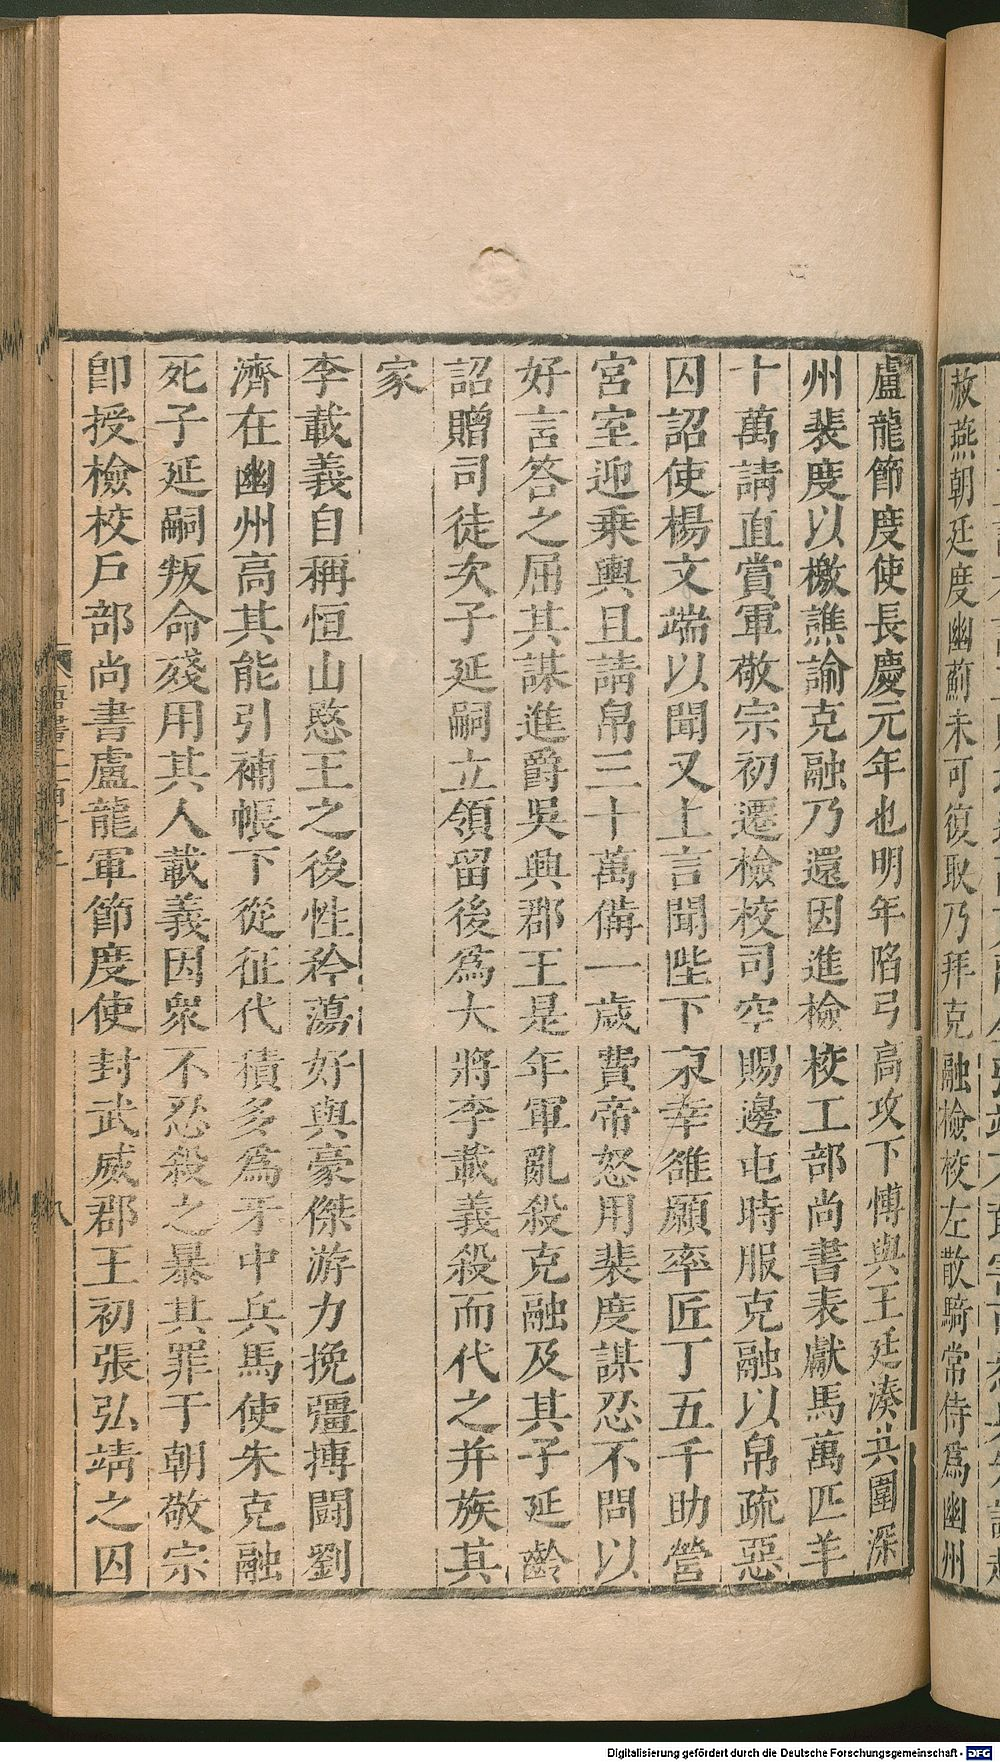 赦燕朝廷度幽薊未可復取乃拜克融檢校左散騎常侍爲幽州
盧龍節度使長慶元年也明年陷弓高攻下愽與王廷湊共圍深
州裴度以檄譙諭克融乃還因進檢校工部尚書表獻馬萬匹羊
十萬請直賞軍敬宗初遷檢校司空賜邊屯時服克融以帛疏惡
囚詔使楊文端以聞又上言聞陛下東幸雒願率匠丁五千助營
宮室迎乗輿且請帛三十萬備一歲費帝怒用裴度謀忍不問以
好言答之屈其謀進爵吳興郡王是年軍亂殺克融及其子延齡
詔贈司徒次子延嗣立領留後爲大將李載義殺而代之并族其
家
李載義自稱恒山愍王之後性矜蕩好與豪傑游力挽彊搏闘劉
濟在幽州高其能引補帳下從征代積多爲牙中兵馬使朱克融
死子延嗣叛命殘用其人載義因衆不忍殺之暴其罪于朝敬宗
卽授檢校戸部尚書盧龍軍節度使封武威郡王初張弘靖之囚
八
Digitalisierung gefördert durch die Deutsche Forschungsgemeinschaft - DFG